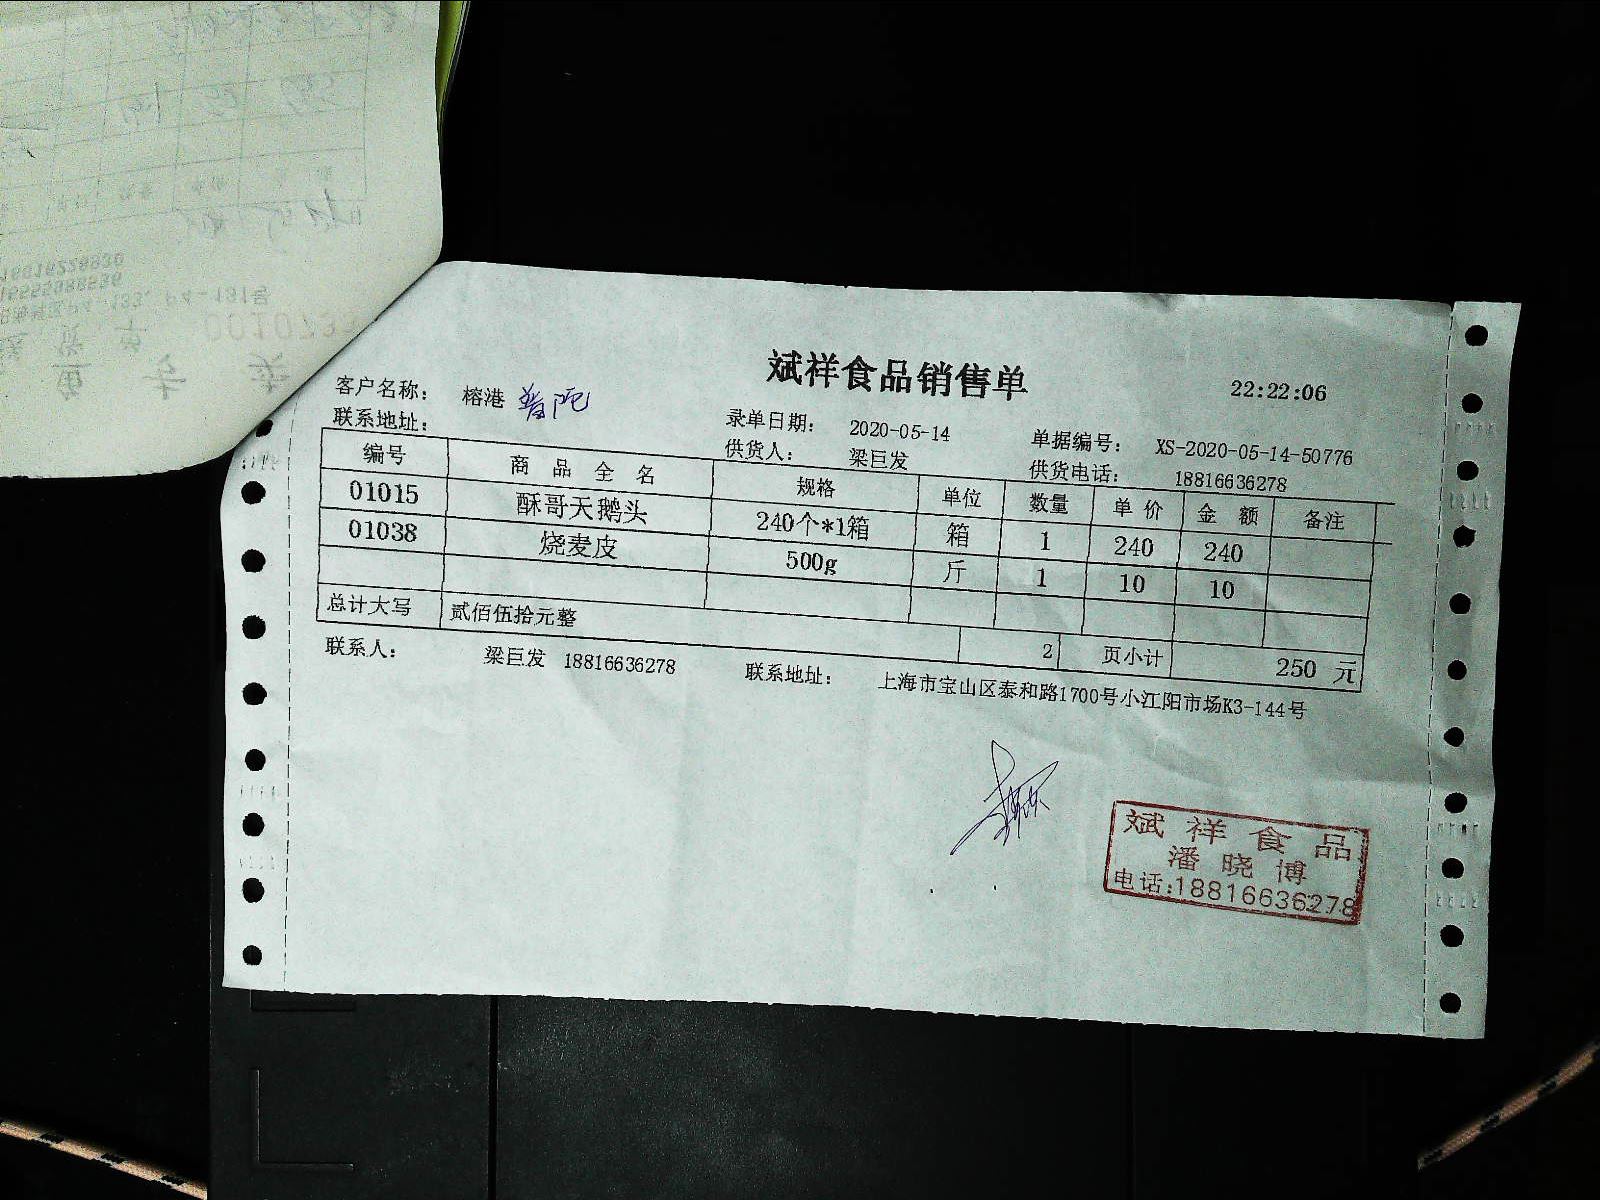 斌祥食品销售单
22:22:06
客户名称： 榕港 普陀
录单日期： 2020-05-14 单据编号： XS-2020-05-14-50776
联系地址：
供货人： 梁巨发 供货电话： 18816636278
编号 商品全名 规格 单位 数量 单价 金额 备注
01015 酥哥天鹅头 240个*1箱 箱 1 240 240
01038 烧麦皮 500g 斤 1 10 10
总计大写 贰佰伍拾元整 2 页小计 250 元
联系人： 梁巨发 18816636278 联系地址： 上海市宝山区泰和路1700号小江阳市场K3-144号
斌祥食品
潘晓博
电话:18816636278